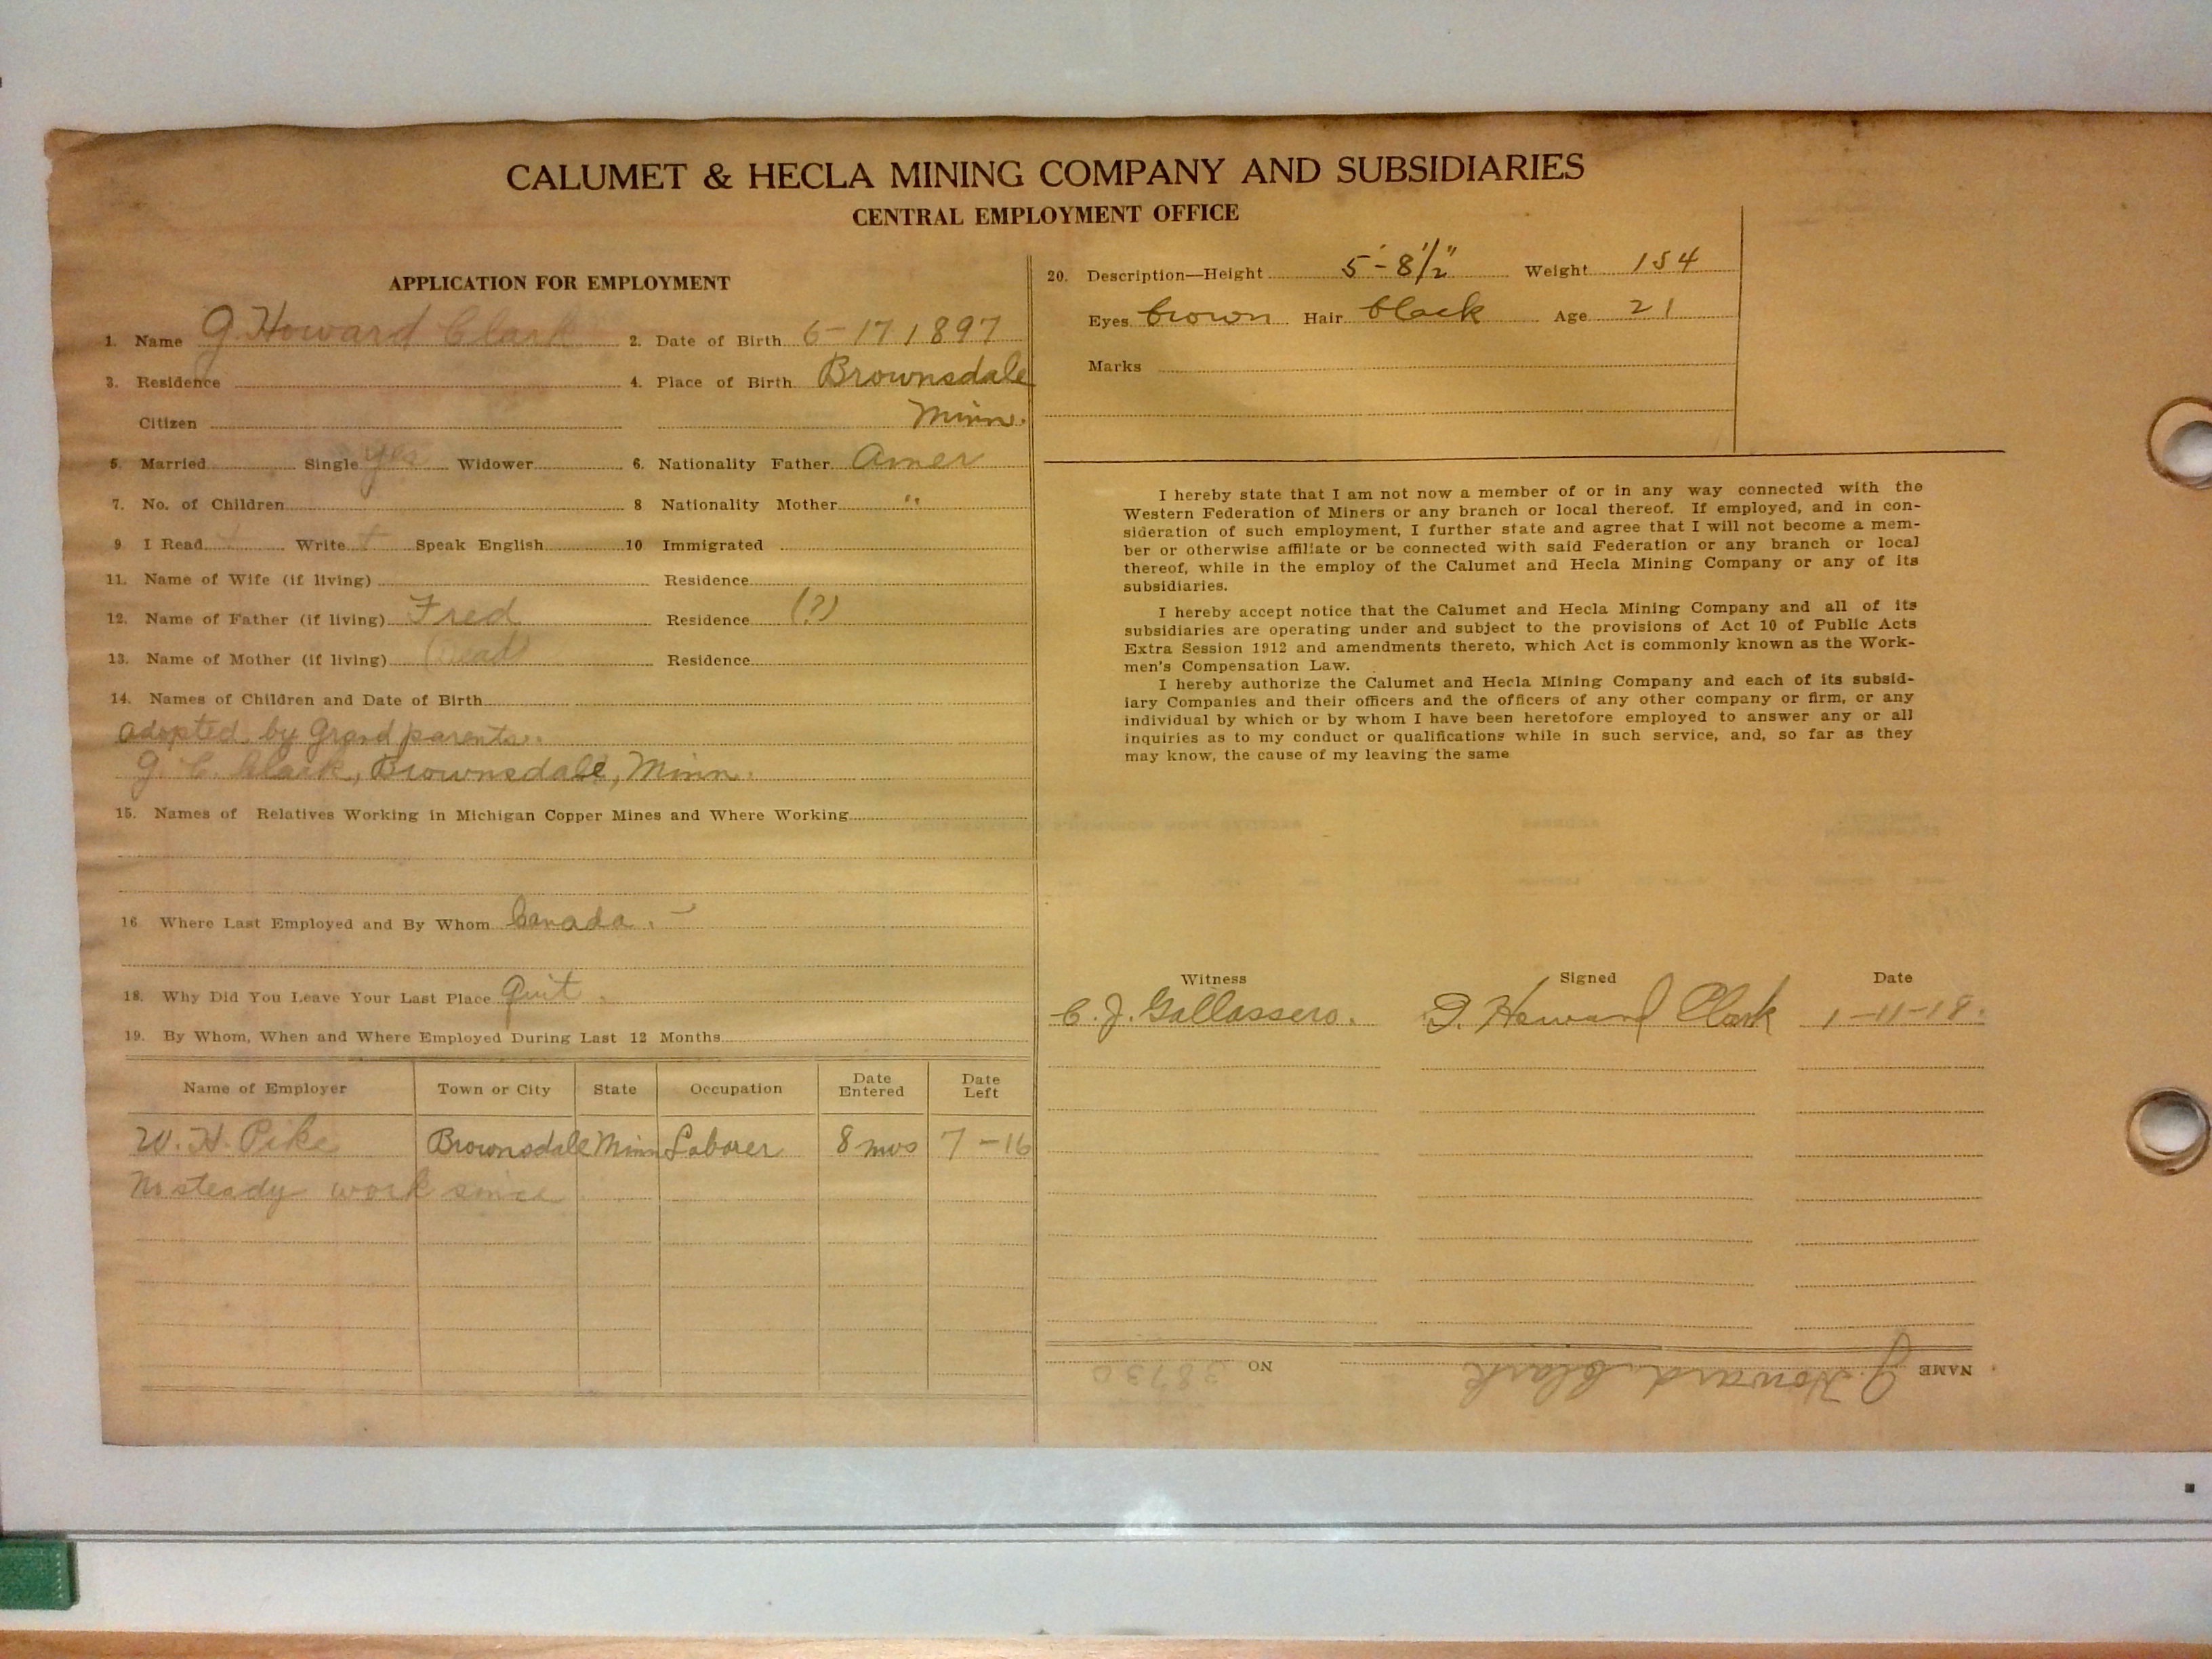 CALUMET & HECLA MINING COMPANY AND SUBSIDIARIES
CENTRAL EMPLOYMENT OFFICE
APPLICATION FOR EMPLOYMENT
1. Name G. Howard Clark 2. Date of Birth 6-17 1897
3. Residence 4. Place of Birth Brownsdale
Citizen Minn.
5. Married Single yes Widower 6. Nationality Father Amer
7. No. of Children 8 Nationality Mother "
9 I Read Write Speak English 10 Immigrated
11. Name of Wife (if living) Residence
12. Name of Father (if living) Fred Residence (?)
13. Name of Mother (if living) (Dead) Residence
14. Names of Children and Date of Birth
adopted by Grandparents.
G. C. Clark, Brownsdale, Minn.
15. Names of Relatives Working in Michigan Copper Mines and Where Working
16 Where Last Employed and By Whom Canada. -
18. Why Did You Leave Your Last Place Quit.
19. By Whom, When and Where Employed During Last 12 Months
Name of Employer Town or City State Occupation Date Entered Date Left
W. H. Pike Brownsdale Minn Laborer 8 mos 7-16
No steady work since
20. Description—Height 5'-8 1/2" Weight 154
Eyes brown Hair black Age 21
Marks
I hereby state that I am not now a member of or in any way connected with the
Western Federation of Miners or any branch or local thereof. If employed, and in con-
sideration of such employment, I further state and agree that I will not become a mem-
ber or otherwise affiliate or be connected with said Federation or any branch or local
thereof, while in the employ of the Calumet and Hecla Mining Company or any of its
subsidiaries.
I hereby accept notice that the Calumet and Hecla Mining Company and all of its
subsidiaries are operating under and subject to the provisions of Act 10 of Public Acts
Extra Session 1912 and amendments thereto, which Act is commonly known as the Work-
men's Compensation Law.
I hereby authorize the Calumet and Hecla Mining Company and each of its subsid-
iary Companies and their officers and the officers of any other company or firm, or any
individual by which or by whom I have been heretofore employed to answer any or all
inquiries as to my conduct or qualifications while in such service, and, so far as they
may know, the cause of my leaving the same
Witness Signed Date
C. J. Gallassero. G. Howard Clark 1-11-18.
NAME G. Howard Clark NO 38730